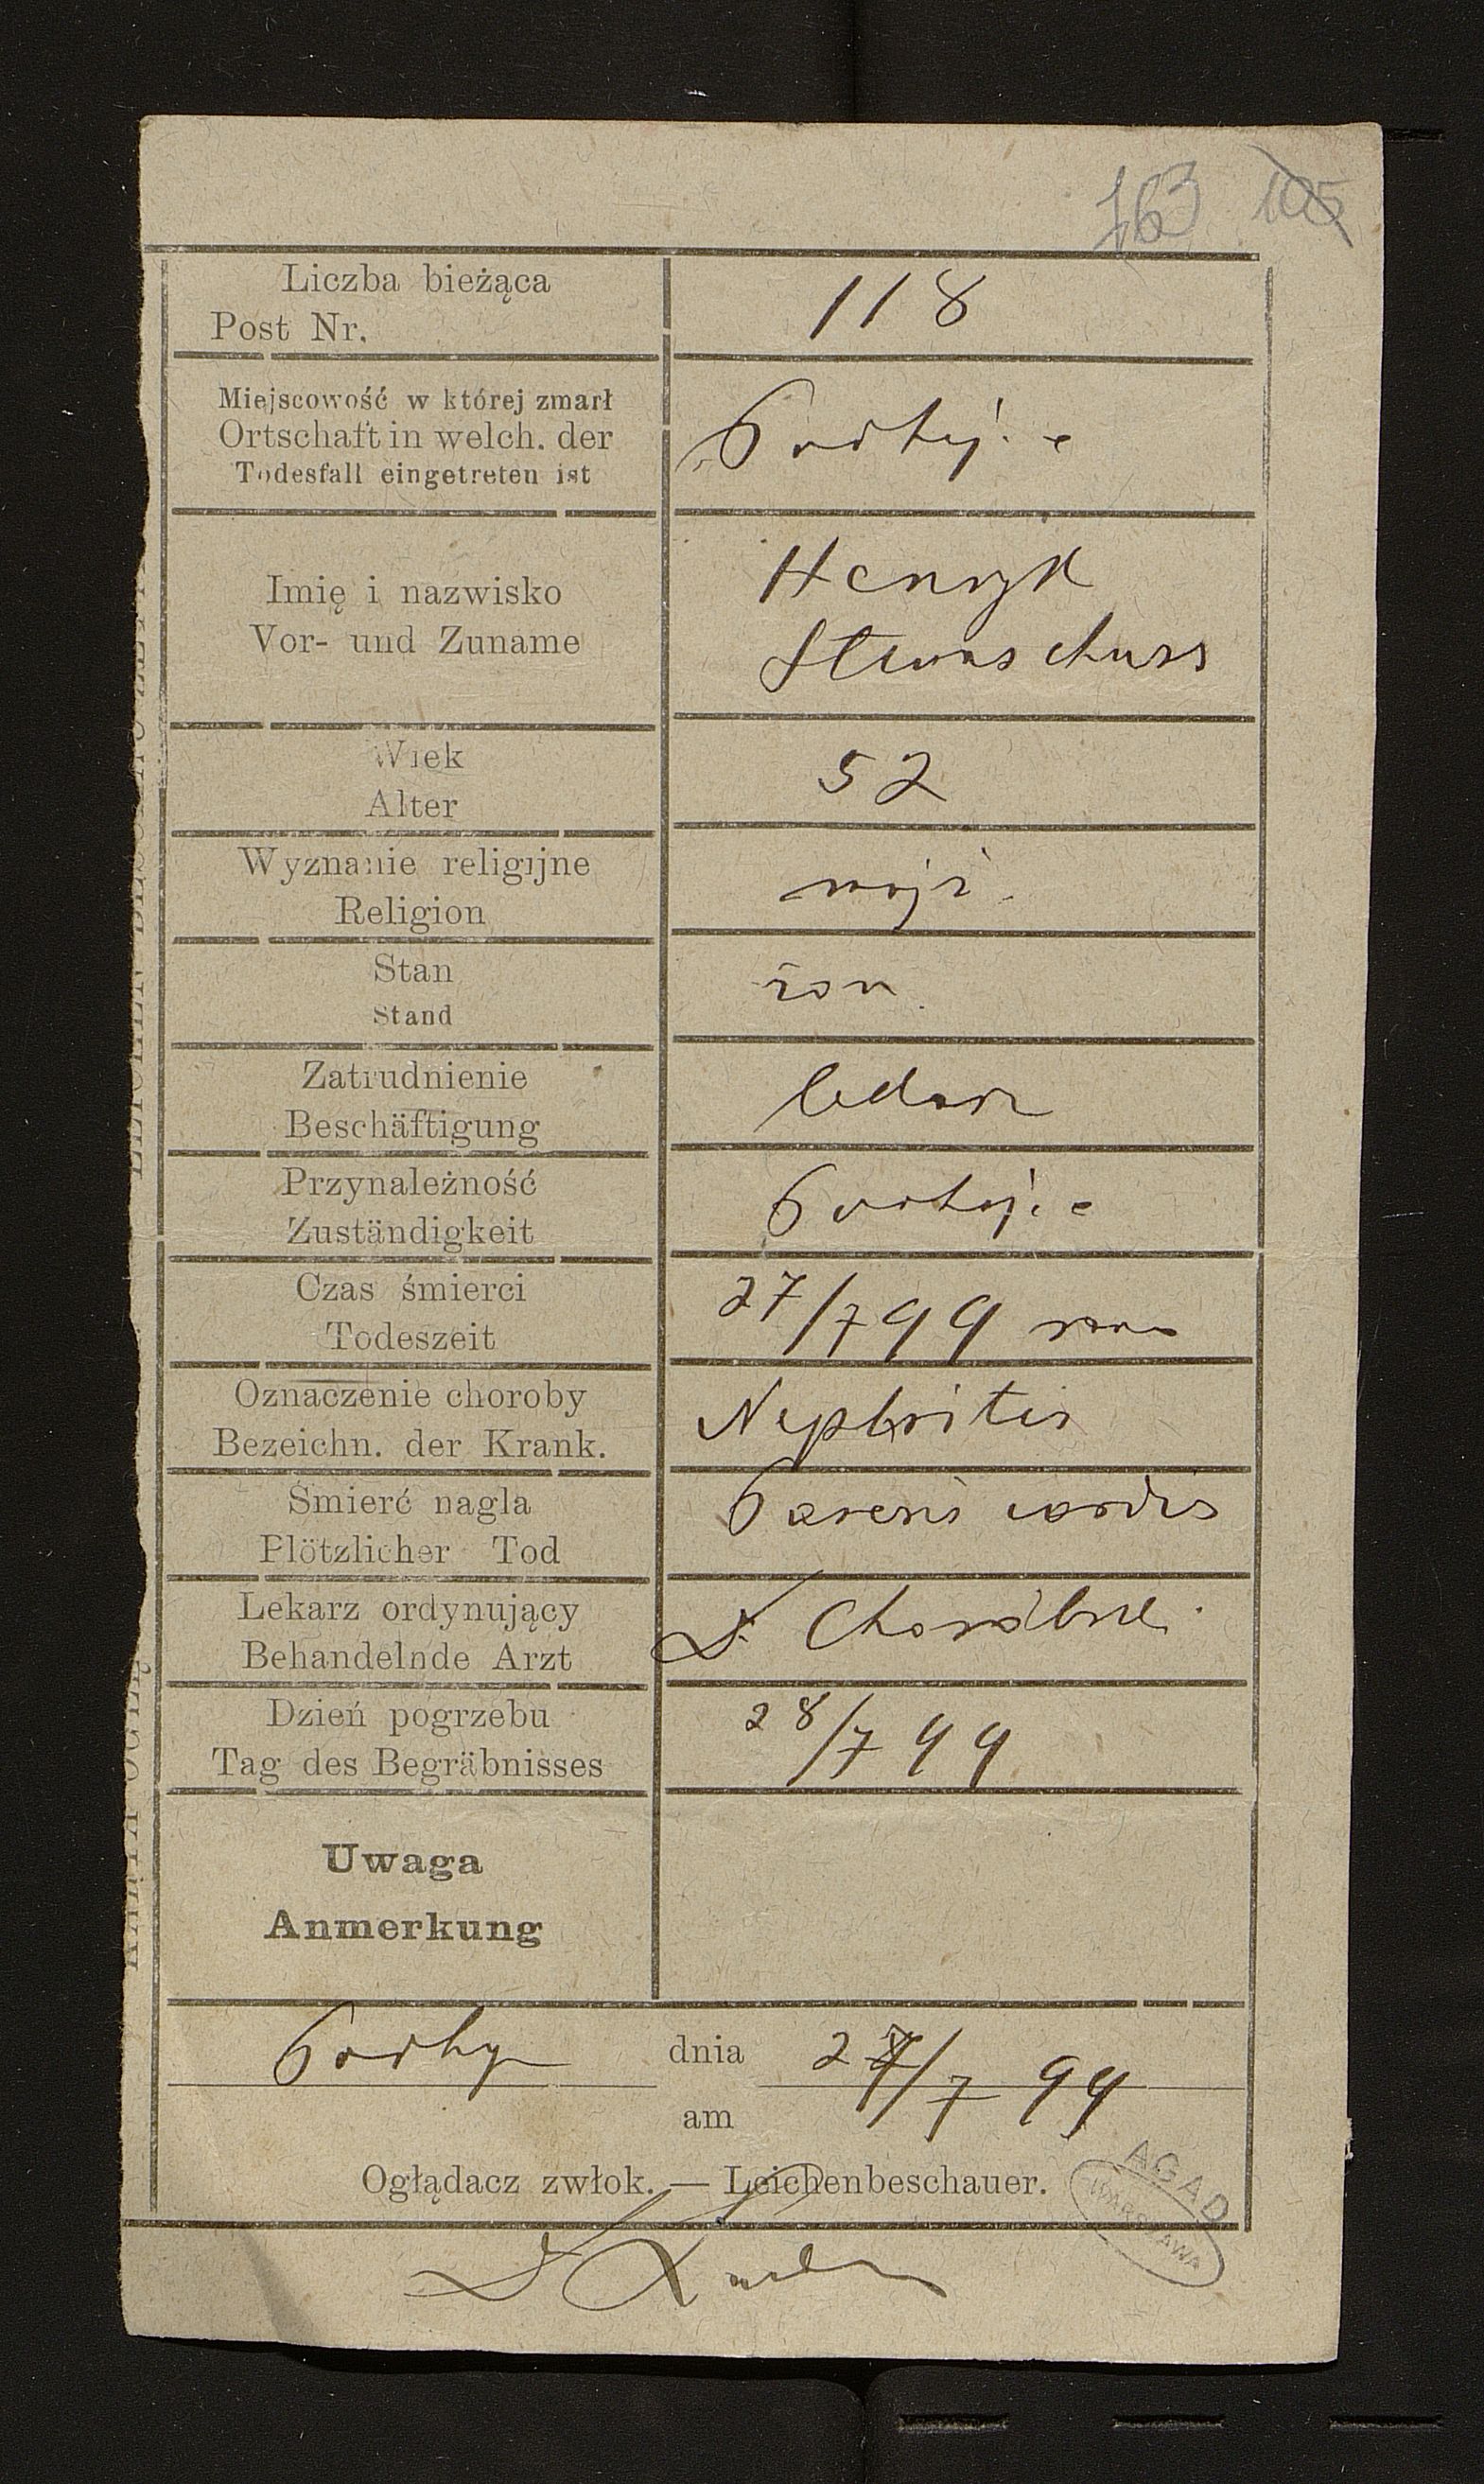 163 105
Liczba bieżąca
Post Nr.
118
Miejscowość w której zmarł
Ortschaft in welch. der
Todesfall eingetreten ist
Imię i nazwisko
Vor- und Zuname
Henryk
Wiek
Alter
52
Wyznanie religijne
Religion
mojż.
Stan
Stand
żon.
Zatrudnienie
Beschäftigung
lekarz
Przynależność
Zuständigkeit
Czas śmierci
Todeszeit
27/7 99 rano
Oznaczenie choroby
Bezeichn. der Krank.
Nephritis
Śmierć nagla
Plötzlicher Tod
Paresis cordis
Lekarz ordynujący
Behandelnde Arzt
Dzień pogrzebu
Tag des Begräbnisses
28/7 99
Uwaga
Anmerkung
dnia
am
/7 99
Oglądacz zwłok. — Leichenbeschauer.
AGAD
WARSZAWA